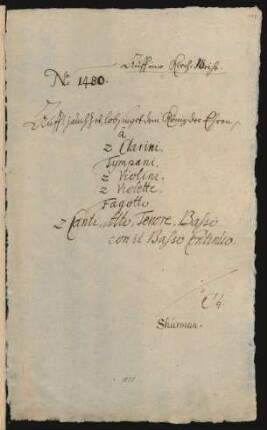 Auff eine Kirch-Weihe.
No 1480.
Auff! jauchzet lobsinget dem König der Ehren,
à
2 Clarini.
Tympani.
2 Violini.
2 Violette.
Fagotto.
2 Canti. Alto, Tenore, Basso
con il Basso Continuo.
Shürman.